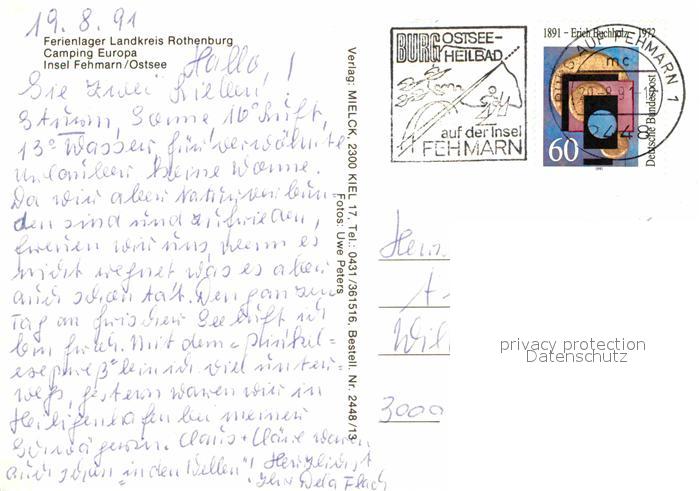 19.8.91
Ferienlager Landkreis Rothenburg
Camping Europa
Insel Fehmarn/Ostsee
Hallo,
Sie zwei Lieben!
Sturm, Sonne 16° Luft,
13° Wasser für verwöhnte
Urlauber keine Wonne.
Da wir aber naturverbun-
den sind und zufrieden,
freuen wir uns, wenn es
nicht regnet was es aber
auch schon tat. Den ganzen
Tag an frischer Seeluft ich
bin froh. Mit dem
bin ich viel unter-
wegs, gestern waren wir in
Heiligenhafen bei meiner
Schwägerin. Claus + Claire waren
auch schon „in den Wellen"! Herzlichst
Ihre Dela
Verlag: MIELCK, 2300 KIEL 17, Tel.: 0431/361516, Bestell. Nr. 2448/13
Fotos: Uwe Peters
BURG OSTSEE-
HEILBAD
auf der Insel
FEHMARN
1891 - Erich Buchholz 1972
BURG AUF FEHMARN 1
mc
2448
60
Deutsche Bundespost
1991
Herrn
A.
Wil
3000
privacy protection
Datenschutz